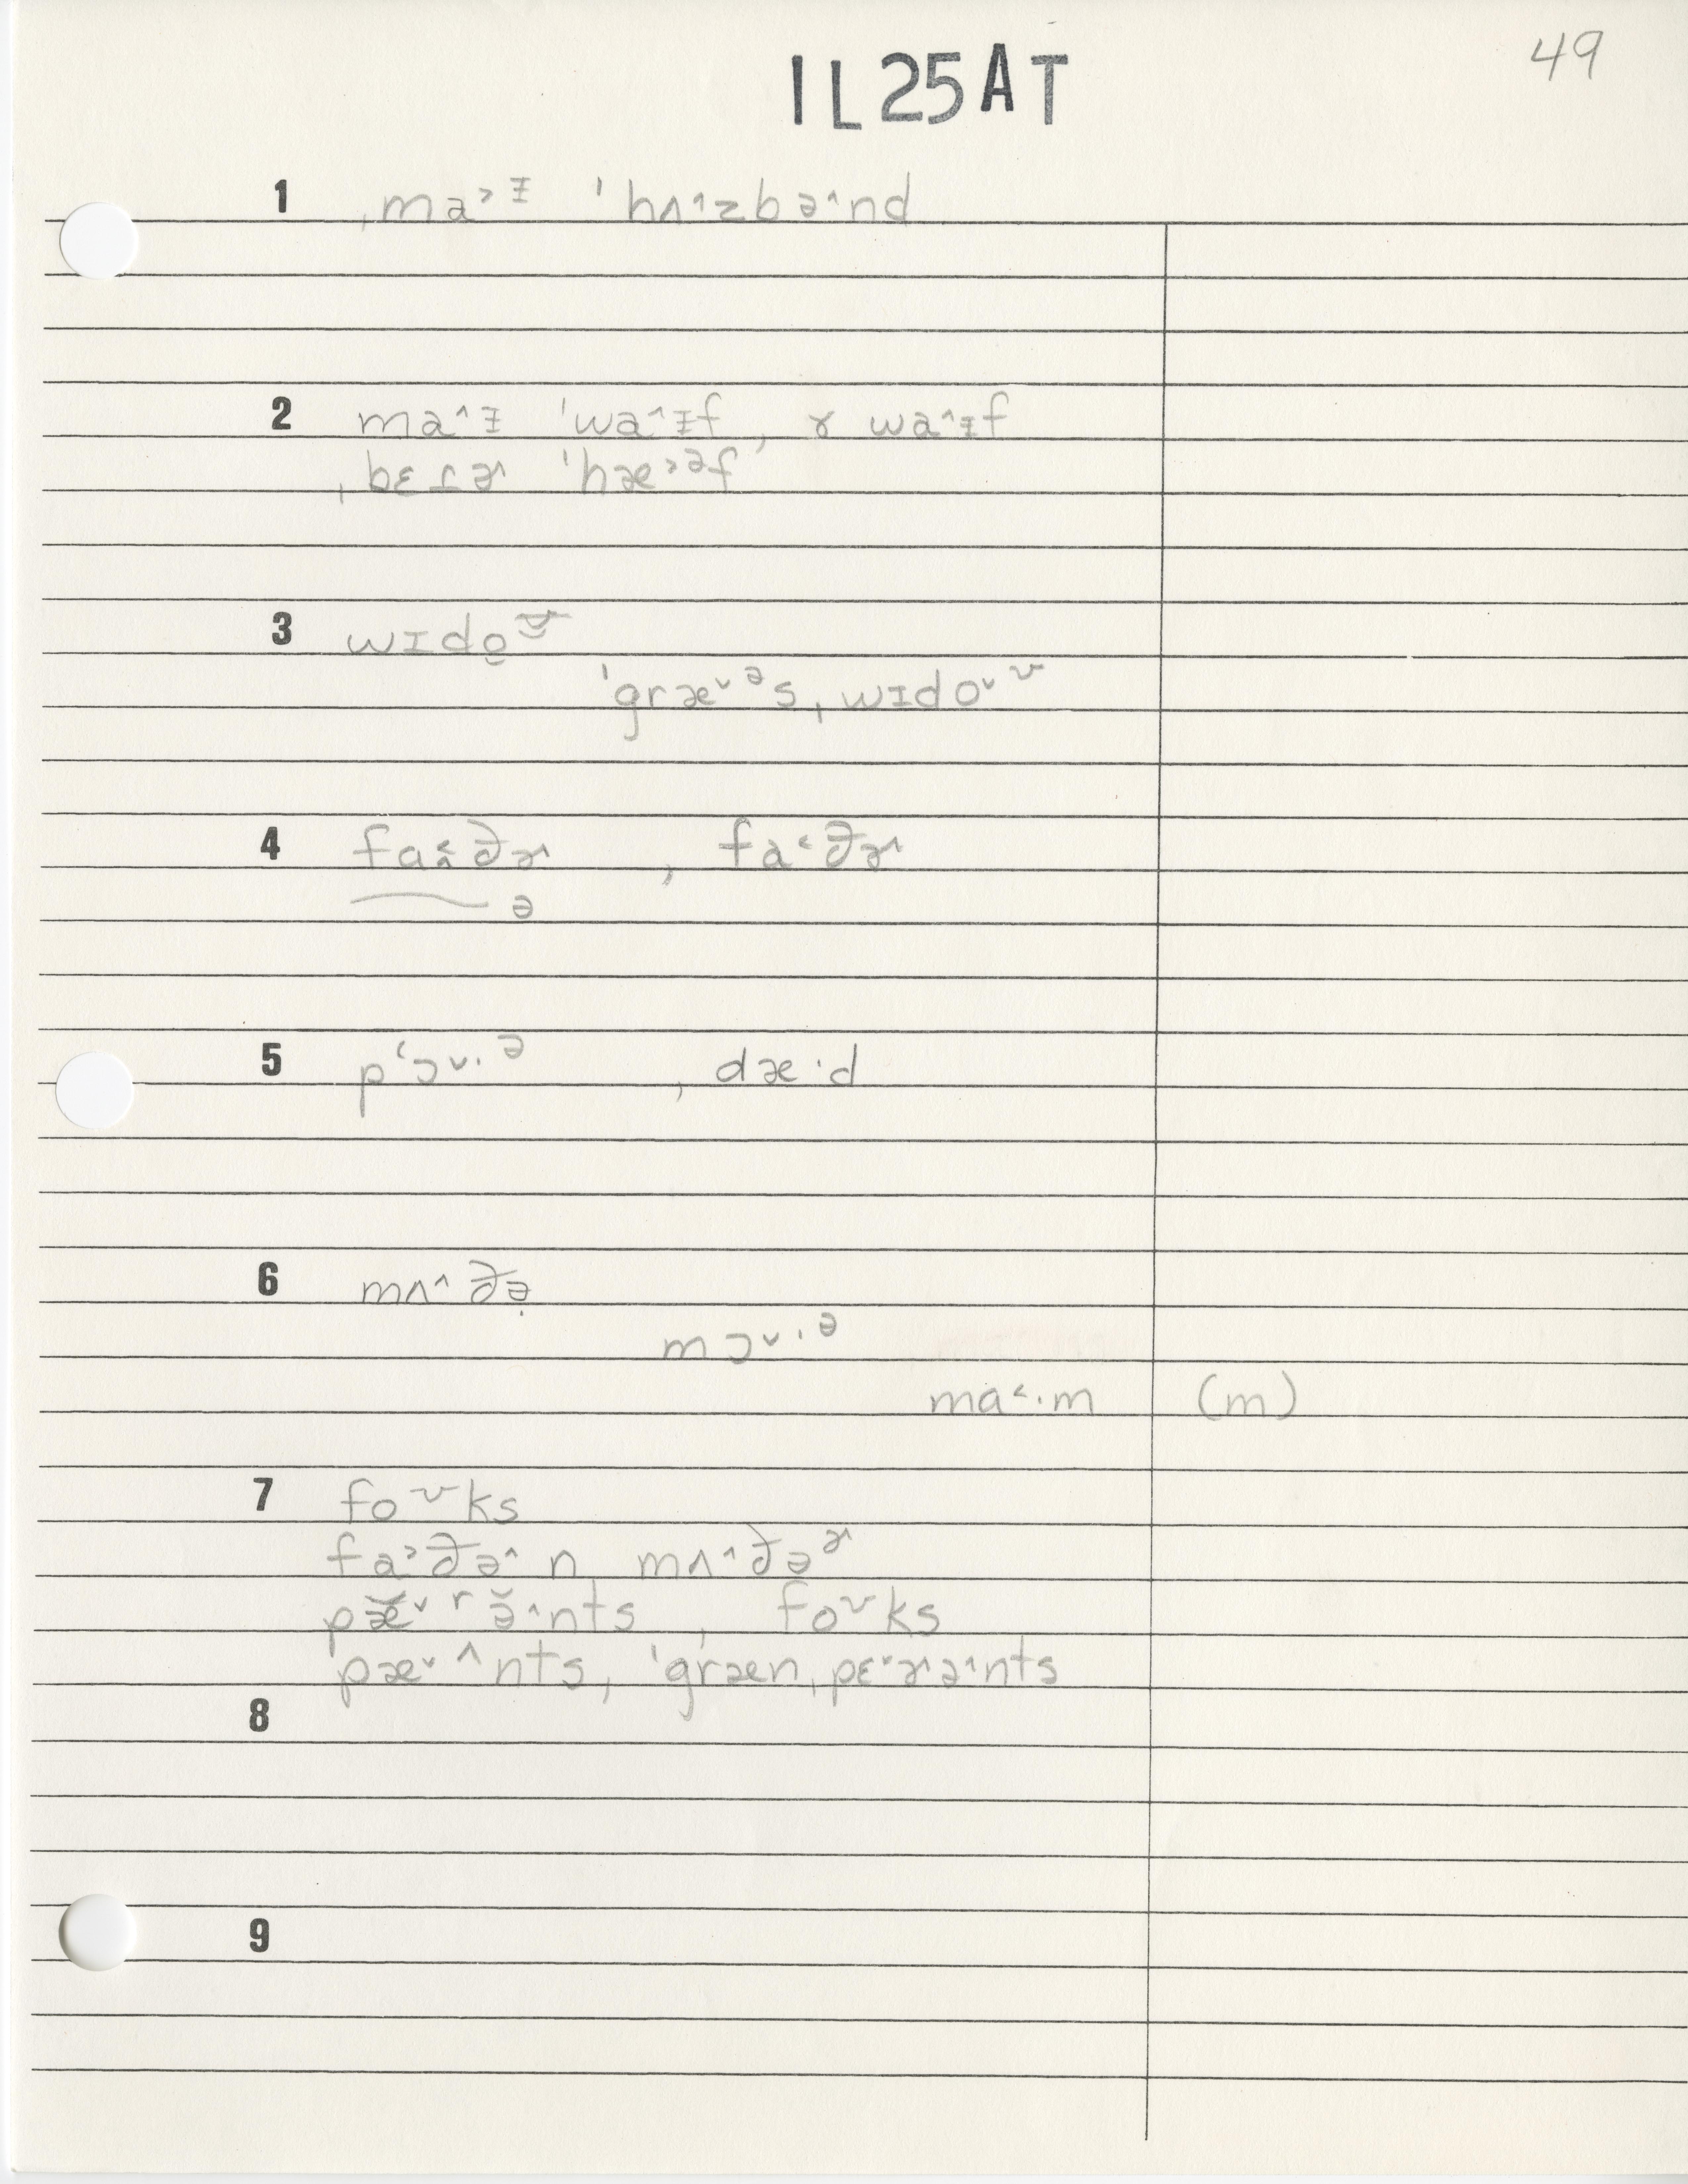 49
IL25AT
1 ˌmaᵓᵻ ˈhʌ˄zbə˄nd
2 ma˄ᵻ ˈwa˄ᵻf, ɤ wa˄ᵻf
ˌbɛɾɚ ˈhæ˃ᵊf
3 wɪdo
ˈgræ˅ᵊsˌwɪdo˅ᶷ
4 fa ðɚ, fa˂ðɚ
ə
5 pʻɔ˅·ᵊ, dæ·d
6 mʌ˄ðə̣
mɔ˅·ᵊ
ma˂·m (m)
7 foᶷks
fa˃ðə˄ n mʌ˄ðəᵊ˞
pæ̆˅rə̆˄nts, foᶷks
pæ˅^nts, ˈgrænˌpɛ˅ɚə˄nts
8
9